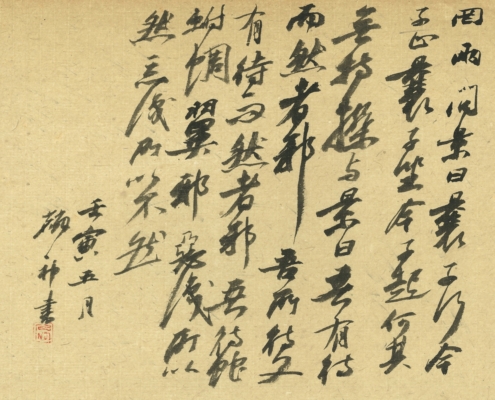 罔兩問景曰曩子行今
子止曩子坐今子起何其
無特操與景曰吾有待
而然者邪吾所待又
有待而然者邪吾待蛇
蚹蜩翼邪惡識所以
然惡識所以不然
壬寅五月
書